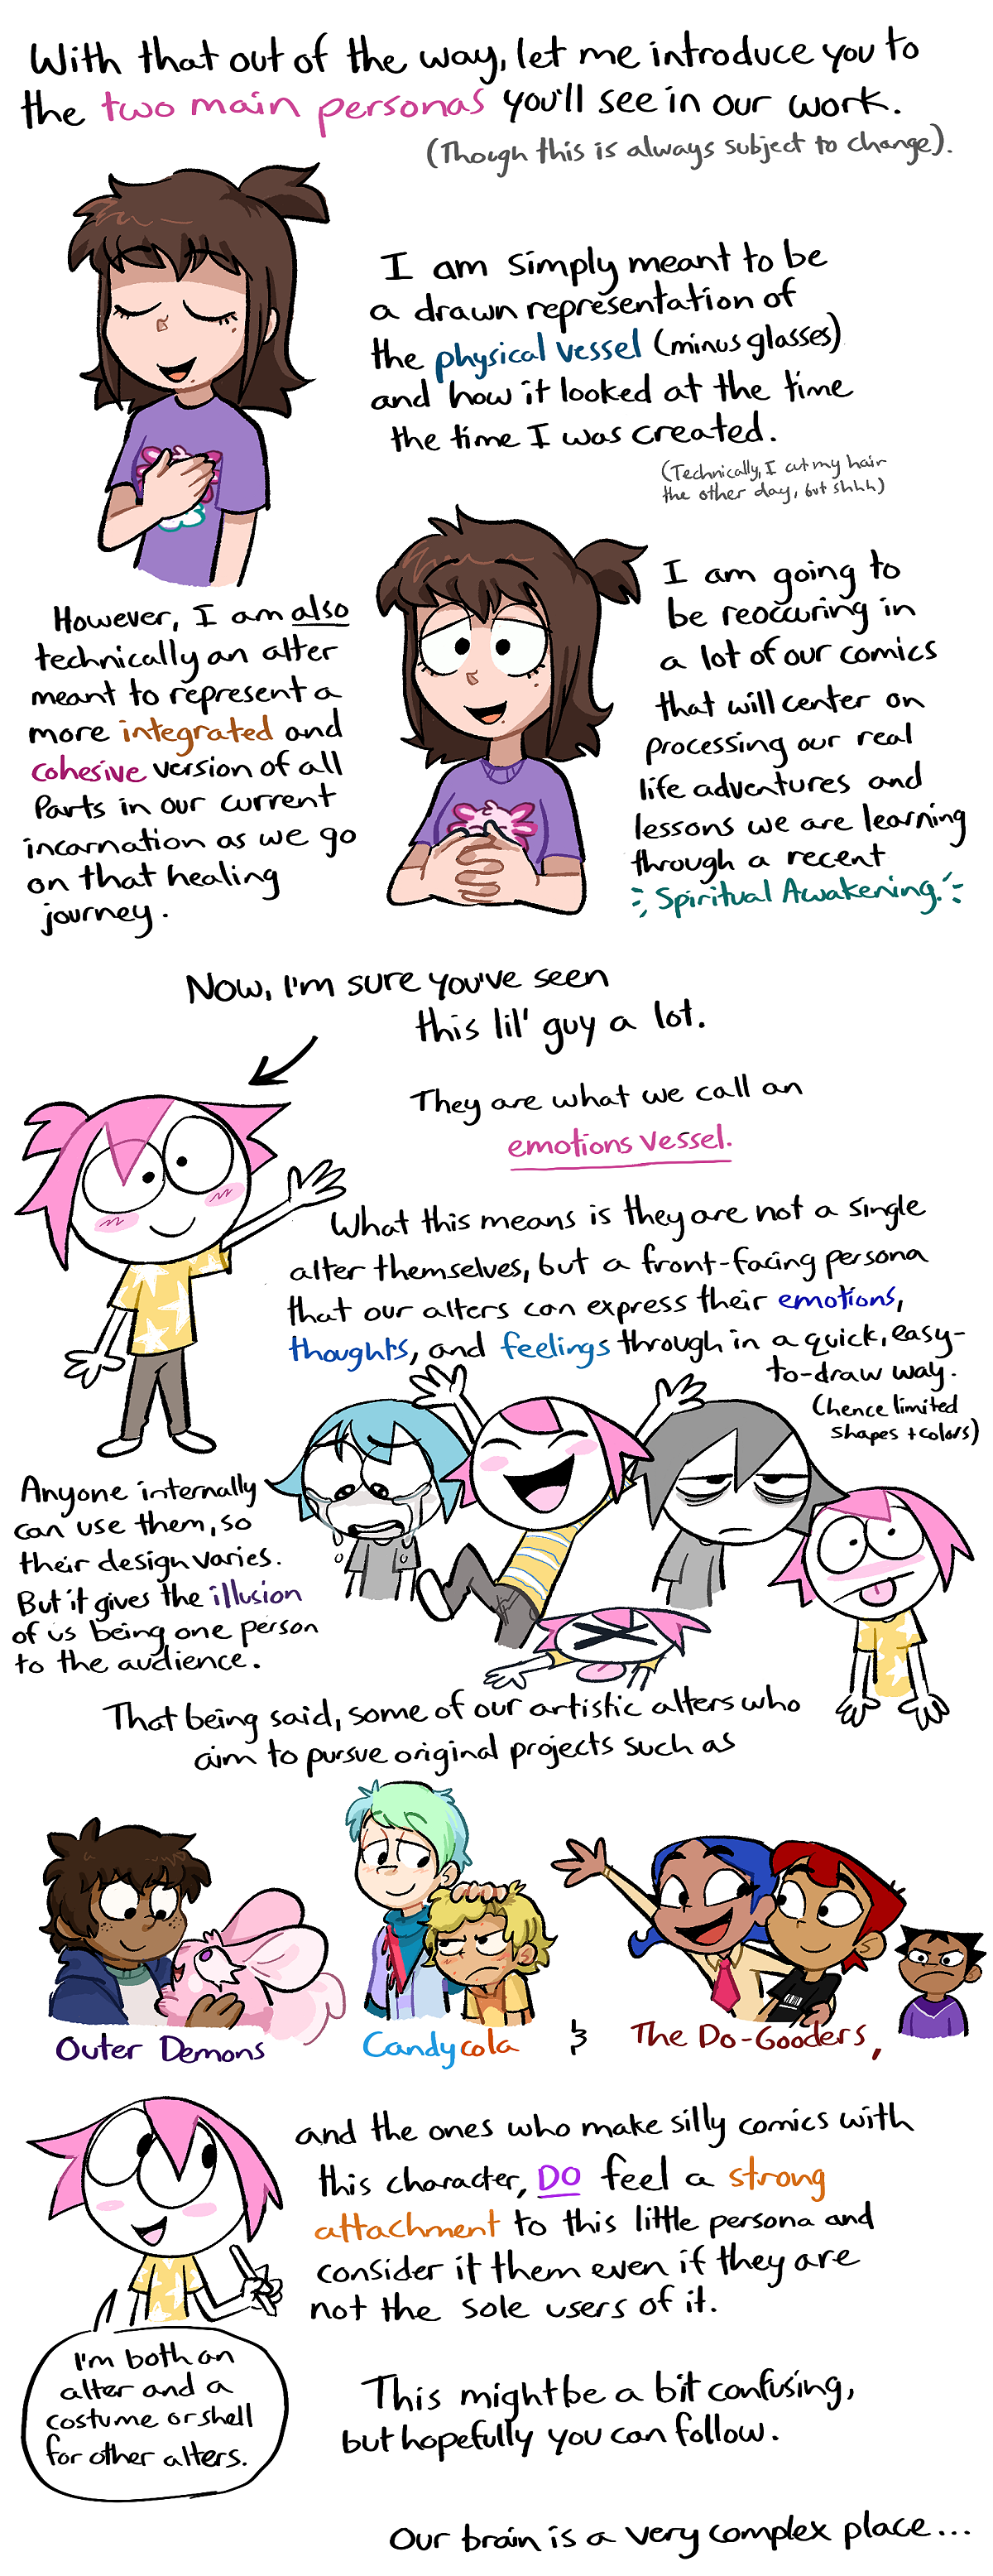 With that out of the way, let me introduce you to
the two main personas you'll see in our work.
(Though this is always subject to change).
I am simply meant to be
a drawn representation of
the physical vessel (minus glasses)
and how it looked at the time
the time I was created.
(Technically, I cut my hair
the other day, but shhh)
However, I am also
technically an alter
meant to represent a
more integrated and
cohesive version of all
Parts in our current
incarnation as we go
on that healing
journey.
I am going to
be reoccuring in
a lot of our comics
that will center on
processing our real
life adventures and
lessons we are learning
through a recent
Spiritual Awakening.
Now, I'm sure you've seen
this lil' guy a lot.
They are what we call an
emotions vessel.
What this means is they are not a single
alter themselves, but a front-facing persona
that our alters can express their emotions,
thoughts, and feelings through in a quick, easy-
to-draw way.
(hence limited
shapes + colors)
Anyone internally
can use them, so
their design varies.
But it gives the illusion
of us being one person
to the audience.
That being said, some of our artistic alters who
aim to pursue original projects such as
Outer Demons
Candycola
&
The Do-Gooders,
and the ones who make silly comics with
this character, DO feel a strong
attachment to this little persona and
consider it them even if they are
not the sole users of it.
I'm both an
alter and a
costume or shell
for other alters.
This might be a bit confusing,
but hopefully you can follow.
Our brain is a very complex place...